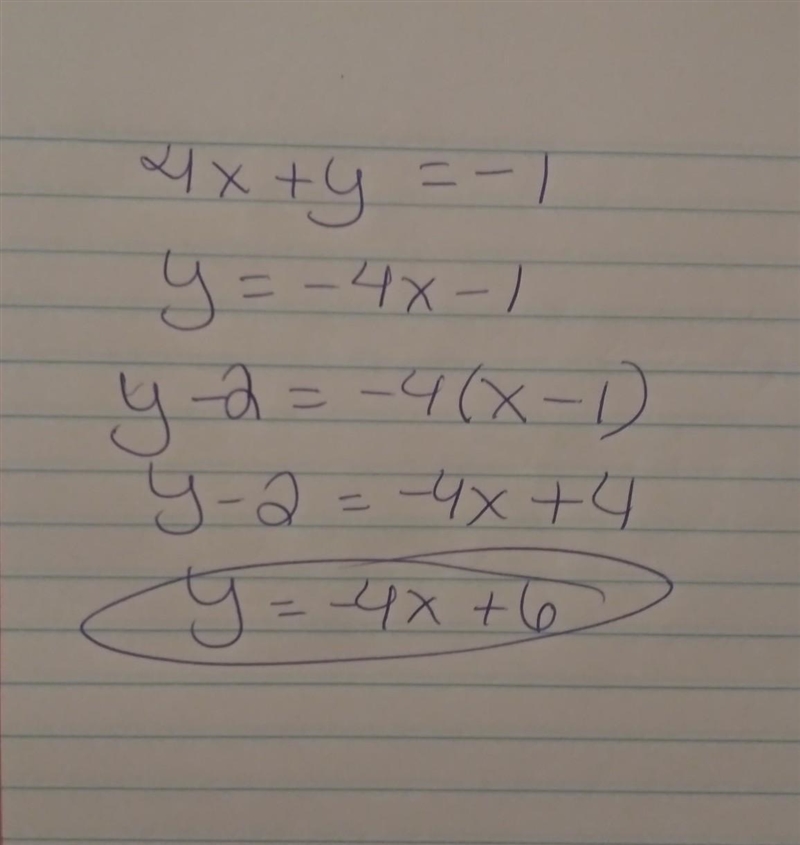 4x + y = -1
y = -4x - 1
y - 2 = -4(x - 1)
y - 2 = -4x + 4
y = -4x + 6